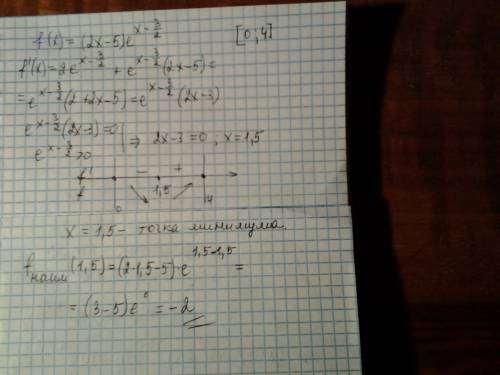 f(x) = (2x-5)e^{x-3/2}    [0;4]
f'(x) = 2e^{x-3/2} + e^{x-3/2}(2x-5) =
= e^{x-3/2}(2+2x-5) = e^{x-3/2}(2x-3)
e^{x-3/2}(2x-3)=0 | ⇒ 2x-3=0; x=1,5
e^{x-3/2}>0
f' - +
f 0 1,5 4
x = 1,5 - точка минимума.
f наим (1,5) = (2·1,5-5)·e^{1,5-1,5} =
= (3-5)e^0 = -2